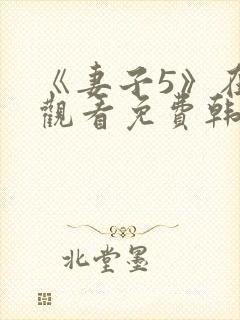 《妻子5》在
觀看免費韩
北堂墨